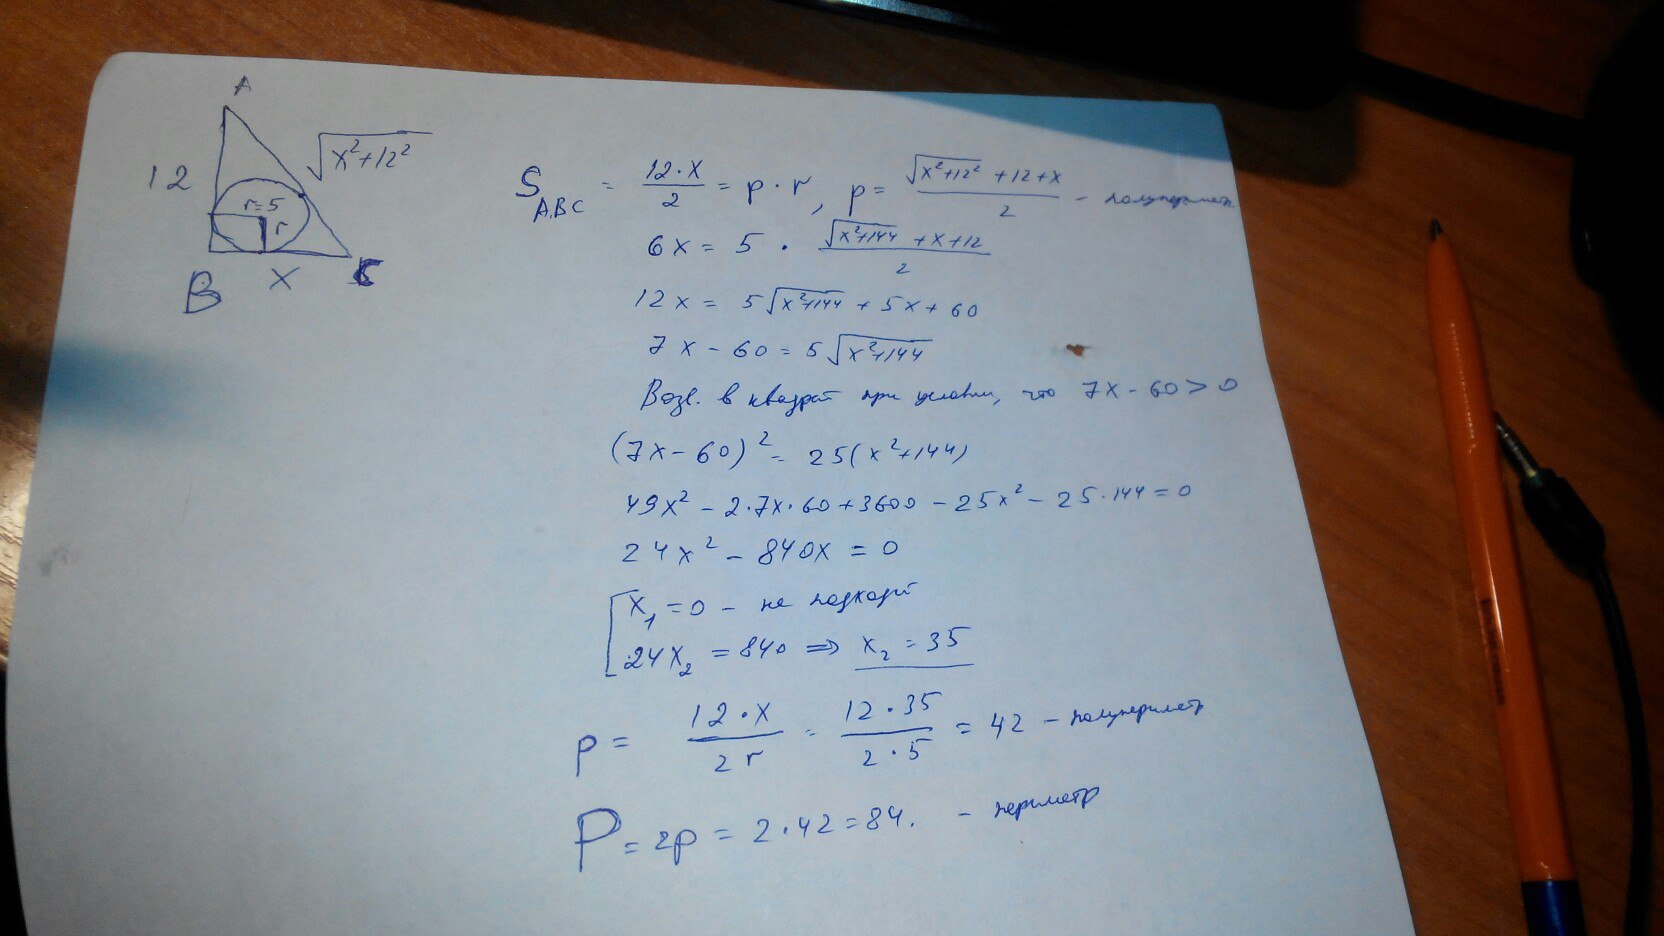 A
12
√(x²+12²)
r=5
r
B
x
C
S_ABC = 12·x/2 = p·r, p = (√(x²+12²) + 12+x)/2 - полупериметр
6x = 5 · (√(x²+144) + x+12)/2
12x = 5√(x²+144) + 5x + 60
7x - 60 = 5√(x²+144)
Возв. в квадрат при условии, что 7x - 60 > 0
(7x - 60)² = 25(x²+144)
49x² - 2·7x·60 + 3600 - 25x² - 25·144 = 0
24x² - 840x = 0
x₁ = 0 - не подходит
24x₂ = 840 ⇒ x₂ = 35
p = 12·x/2r = 12·35/2·5 = 42 - полупериметр
P = 2p = 2·42 = 84. - периметр